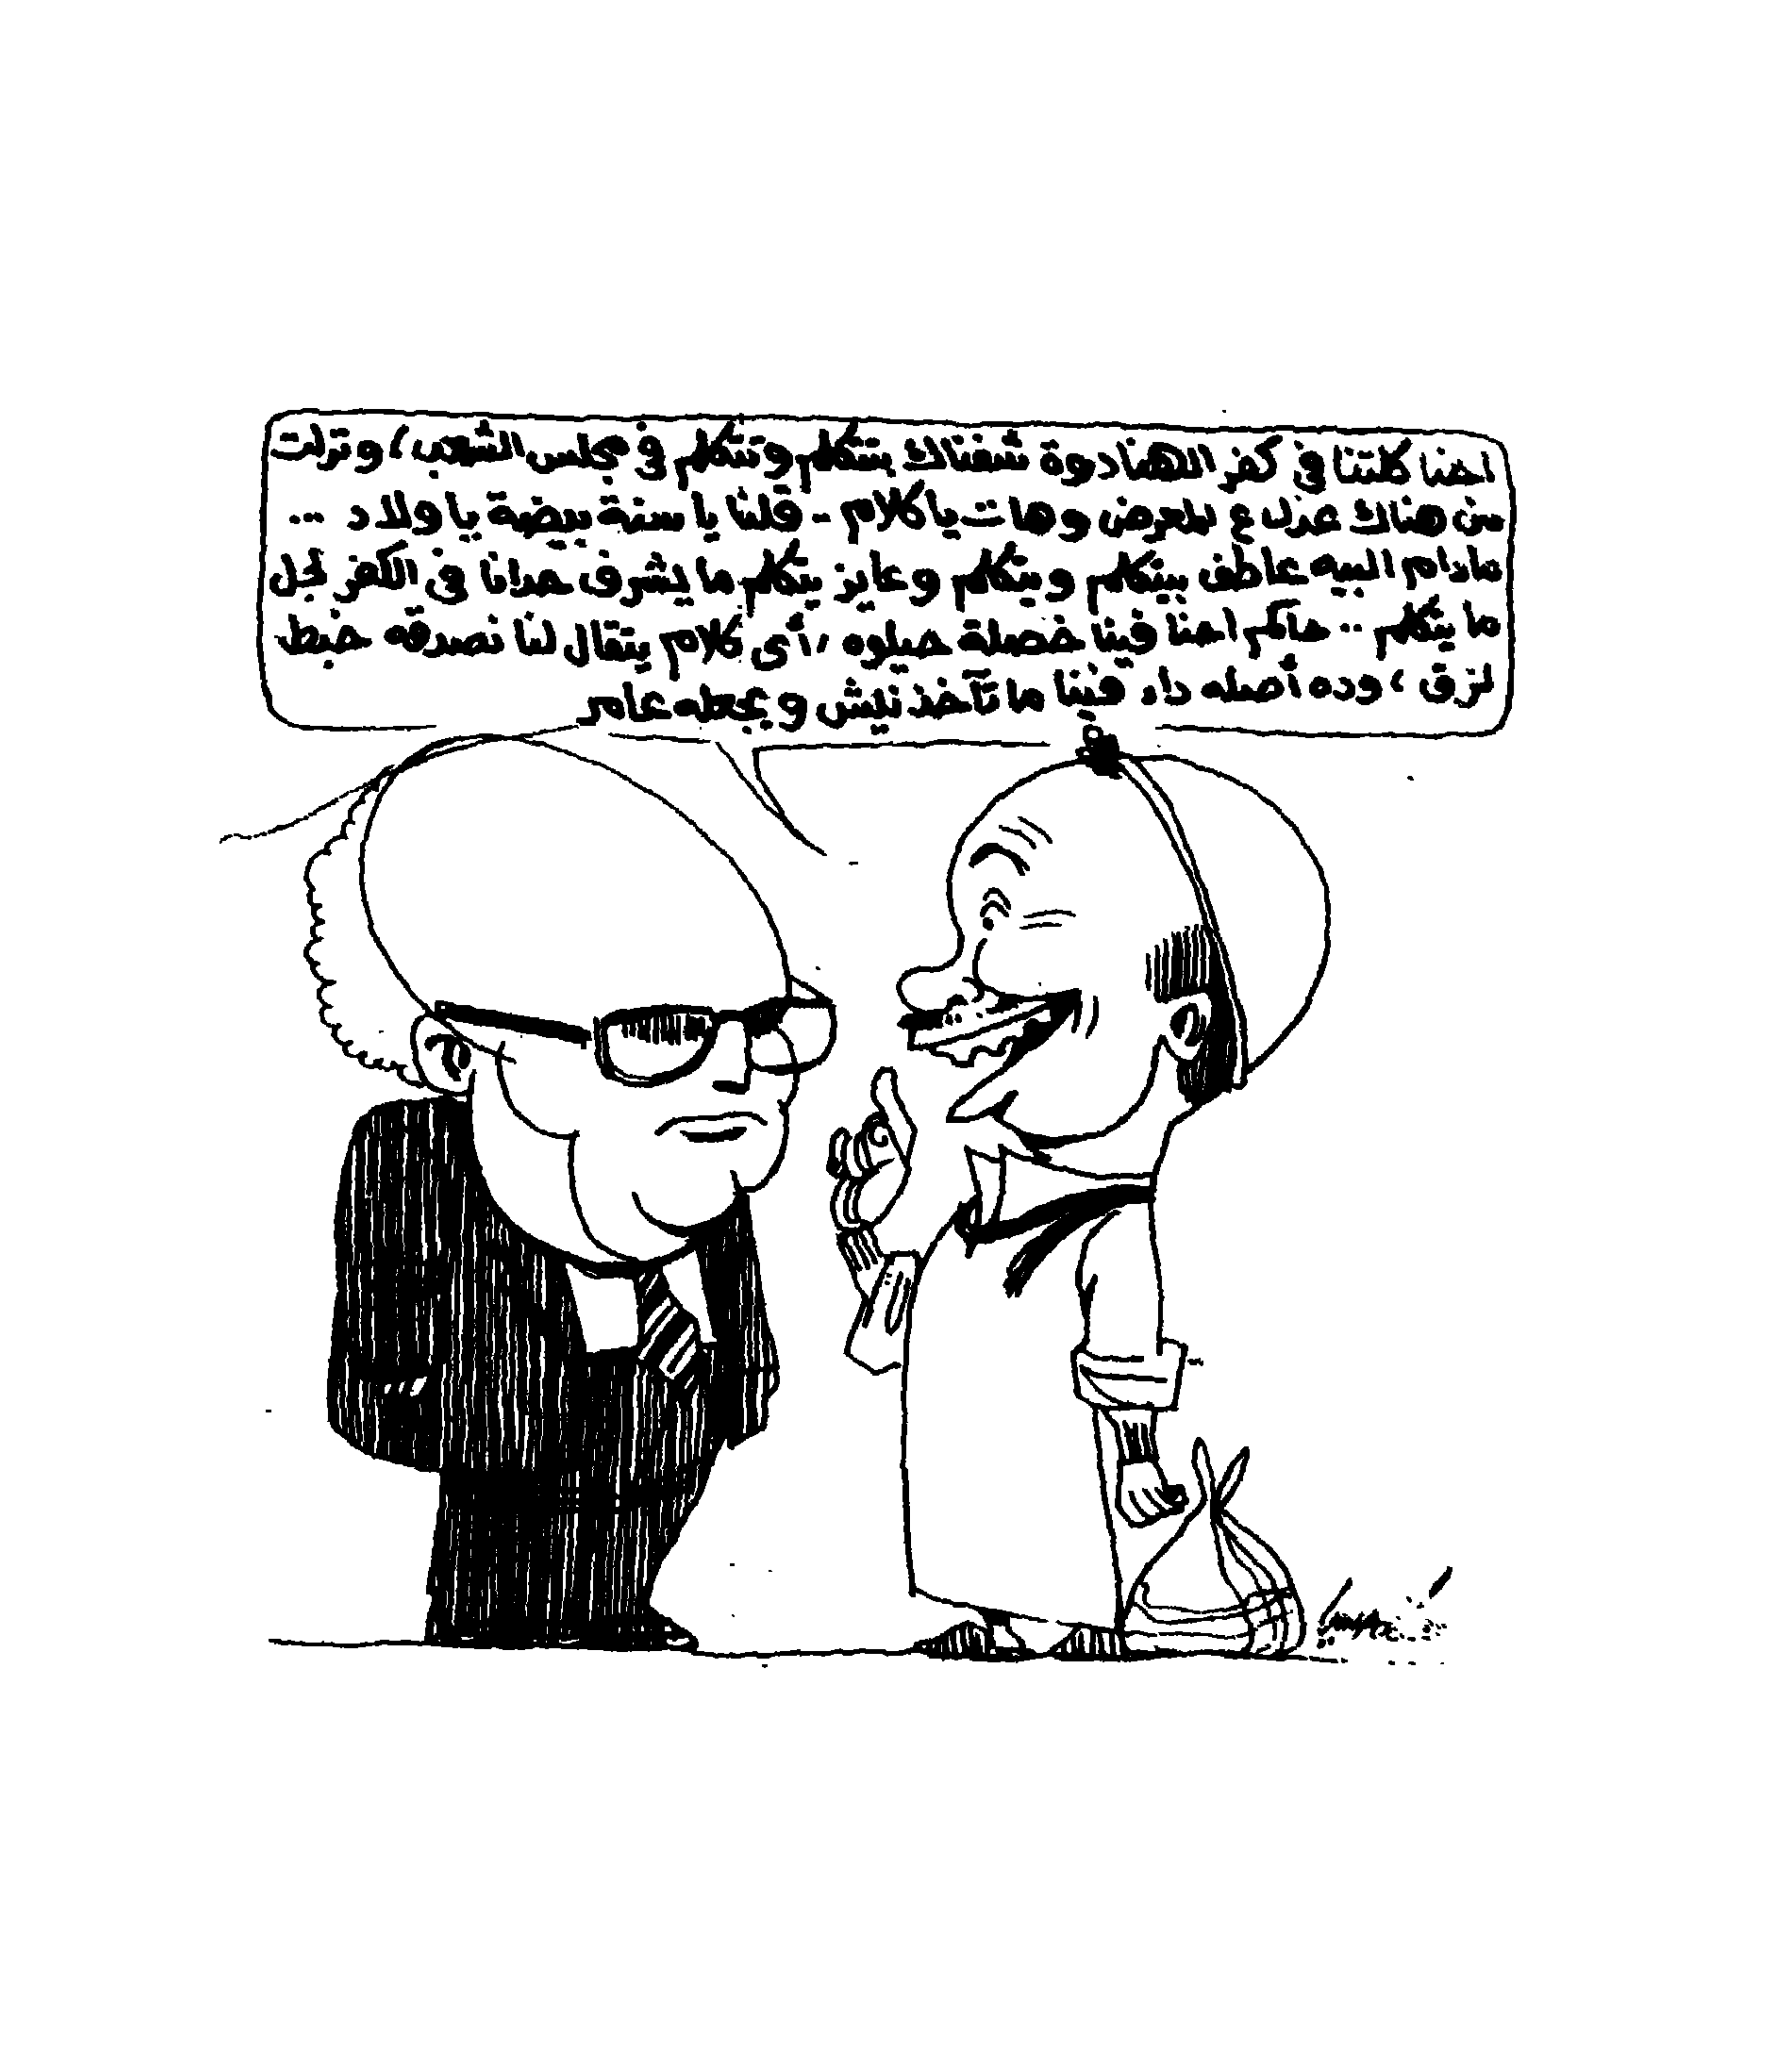 احنا كلتنا فى كفر الهنادوة شفناك بتتكلم وتتكلم فى مجلس الشعب، ونزلت
من هناك عدل ع المعرض وهات يا كلام - قلنا يا سنة بيضة يا ولاد ..
مادام البيه عاطف بيتكلم وبيتكلم وعايز يتكلم ما يشرف حدانا فى الكفر لجل
ما يتكلم .. حاكم احنا فينا خصلة حلوه، أى كلام يتقال لنا نصدقه خبط
لزق، وده أصله داء فينا ما تآخذنيش ويجعله عامر